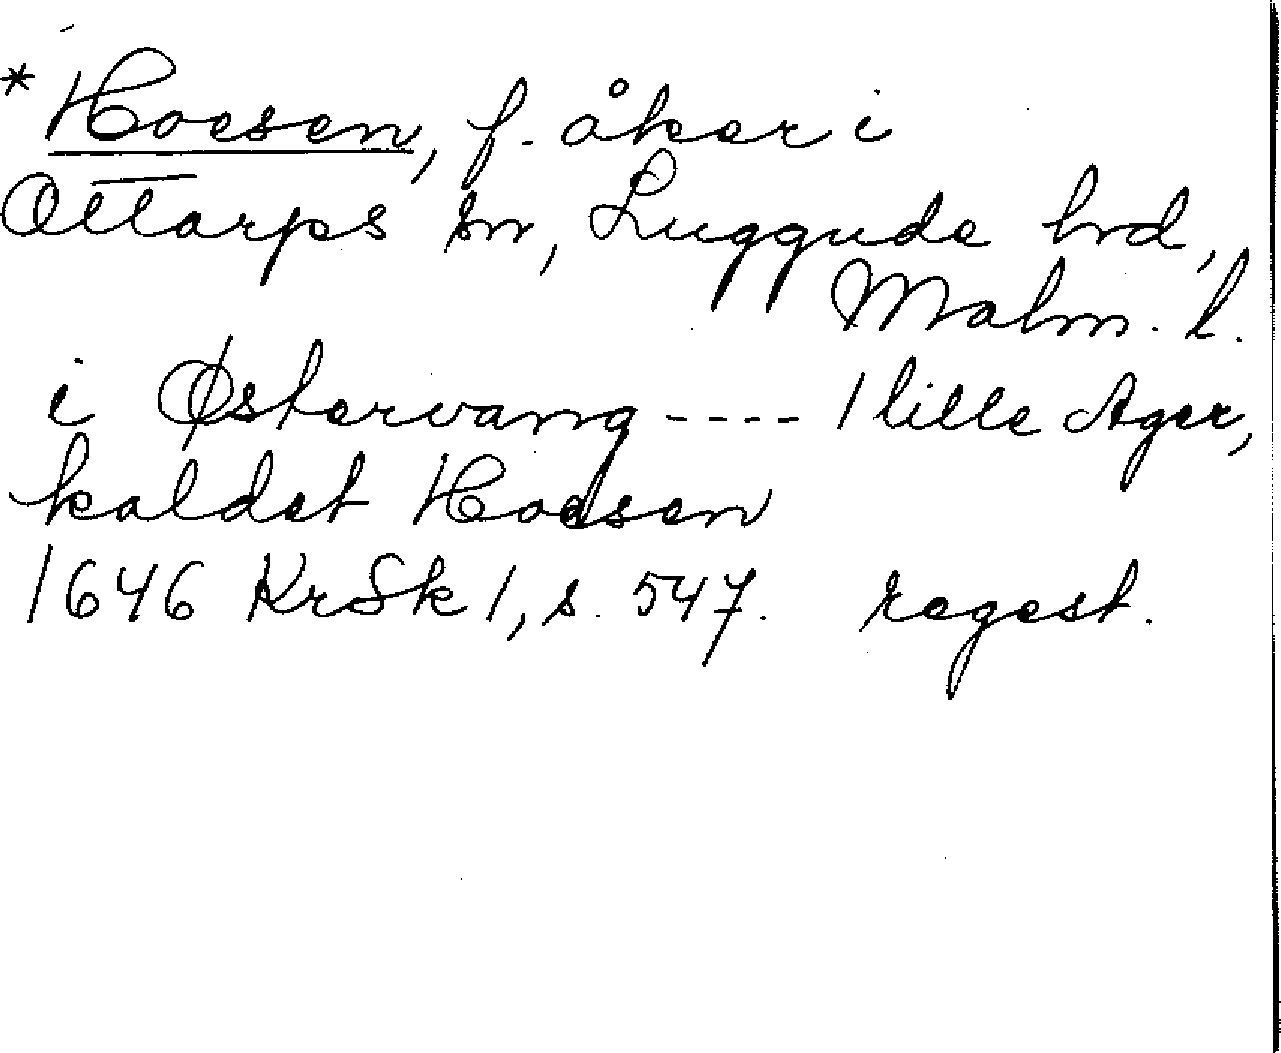 *Hoesen, f. åker i
Ottarps sn, Luggude hrd,
Malm. l.
i Østervang ---- 1 lille Ager,
kaldet Hoesen
1646 KrSk 1, s. 547. regest.